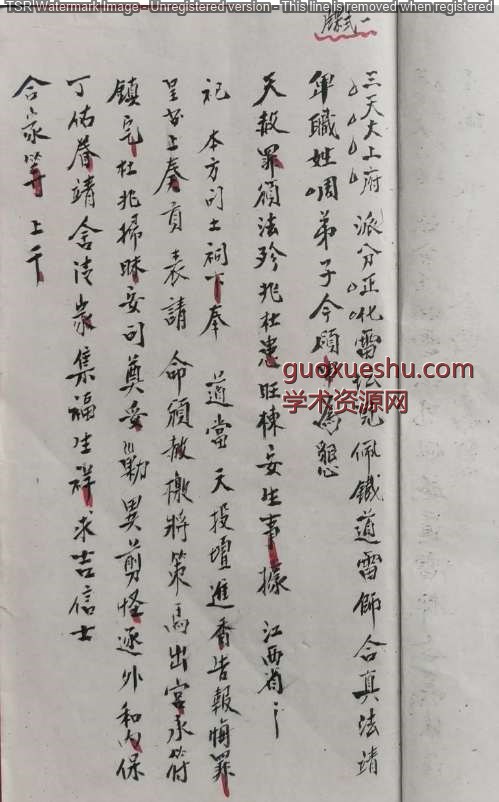 TSR Watermark Image - Unregistered version - This line is removed when registered
牒式一
三天大上府派分正化雷坛 佩鐵道雷師合真法靖
卑職姓 弟子今頒 為懇
天赦罪頒法殄兆杜患旺棟安生事據 江西省
祀 本方司土祠下奉 道當天投壇進香告報悔罪
呈 上奏貢表請 命頒赦檄將策馬出宮承 付
鎮宅杜兆掃昧安司奠 異剪怪逐外和內保
丁佑眷靖 舍清 集福生祥求吉信士
合家等 上千
guoxueshu.com
学术资源网